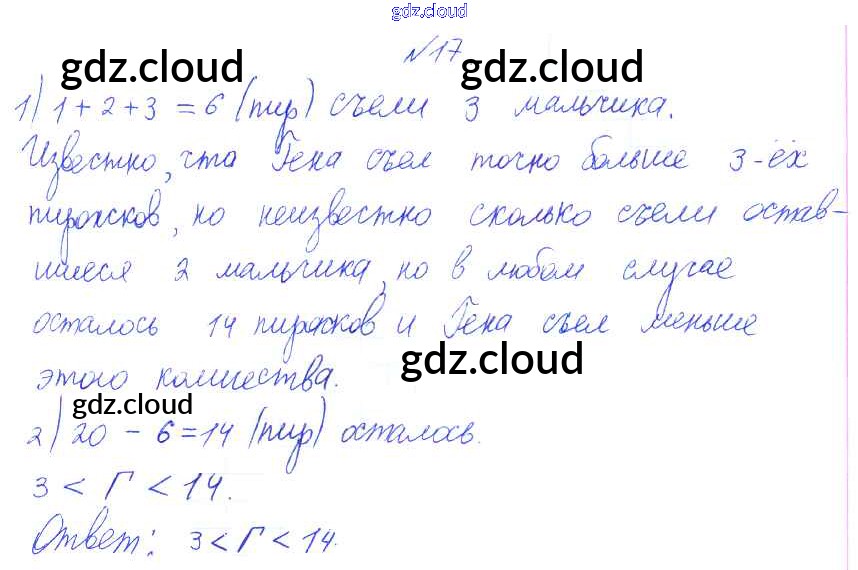 gdz.cloud
№17
gdz.cloud gdz.cloud
1) 1+2+3 = 6 (пир) съели 3 мальчика.
Известно, что Гена съел точно больше 3-ёх
пирожков, но неизвестно сколько съели остав-
шиеся 2 мальчика, но в любом случае
осталось 14 пирожков и Гена съел меньше
gdz.cloud
этого количества.
gdz.cloud
2) 20 - 6 = 14 (пир) осталось.
3 < Г < 14.
Ответ: 3 < Г < 14.